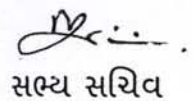 સભ્ય સચિવ